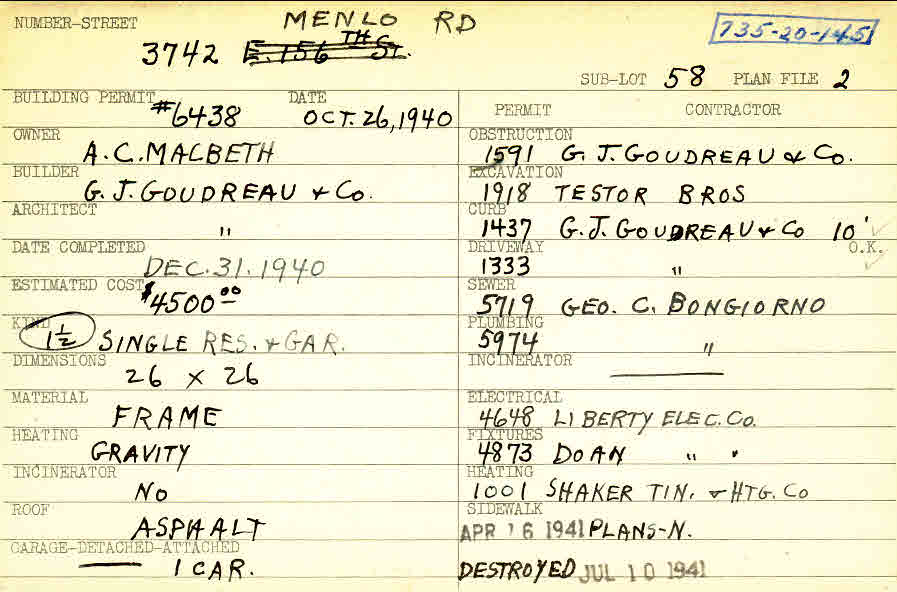 NUMBER-STREET MENLO RD
3742 E. 156TH St. 735-20-145
SUB-LOT 58 PLAN FILE 2
BUILDING PERMIT #6438 DATE OCT. 26, 1940
PERMIT CONTRACTOR
OWNER A. C. MACBETH
OBSTRUCTION 1591 G. J. GOUDREAU & Co.
BUILDER G. J. GOUDREAU & Co.
EXCAVATION 1918 TESTOR BROS
ARCHITECT "
CURB 1437 G. J. GOUDREAU & Co 10'
DATE COMPLETED DEC. 31. 1940
DRIVEWAY 1333 " O.K.
ESTIMATED COST $4500.00
SEWER 5719 GEO. C. BONGIORNO
KIND 1 1/2 SINGLE RES. & GAR.
PLUMBING 5974 "
DIMENSIONS 26 x 26
INCINERATOR ——
MATERIAL FRAME
ELECTRICAL 4648 LIBERTY ELEC. Co.
HEATING GRAVITY
FIXTURES 4873 DOAN " "
INCINERATOR No
HEATING 1001 SHAKER TIN. & HTG. Co
ROOF ASPHALT
SIDEWALK APR 16 1941 PLANS-N.
GARAGE-DETACHED-ATTACHED —— 1 CAR.
DESTROYED JUL 10 1941